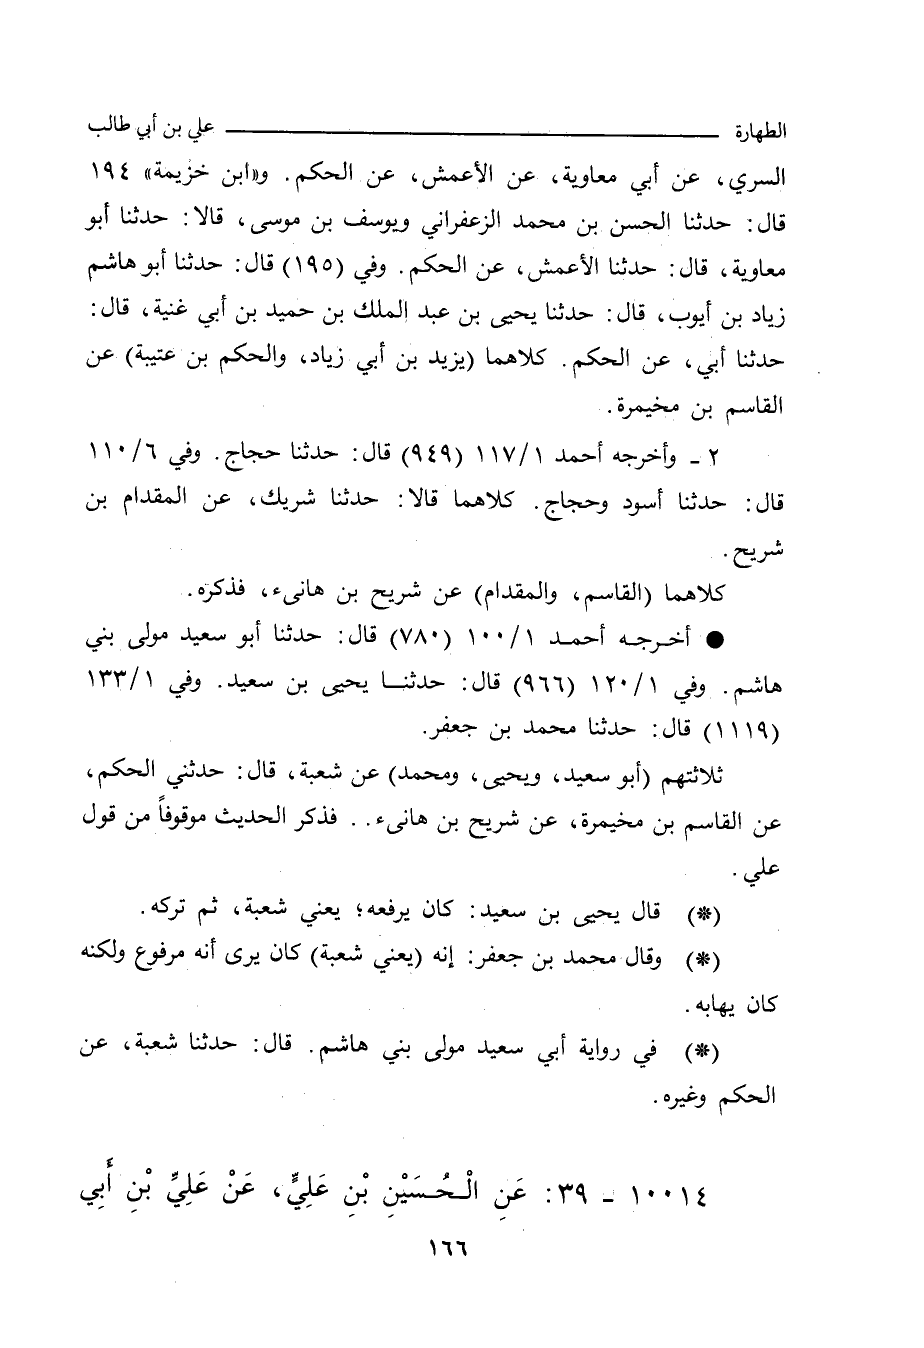 الطهارة ــــــــ علي بن أبي طالب
السري، عن أبي معاوية، عن الأعمش، عن الحكم. و«ابن خزيمة» ١٩٤
قال: حدثنا الحسن بن محمد الزعفراني ويوسف بن موسى، قالا: حدثنا أبو
معاوية، قال: حدثنا الأعمش، عن الحكم. وفي (١٩٥) قال: حدثنا أبو هاشم
زياد بن أيوب، قال: حدثنا يحيى بن عبد الملك بن حميد بن أبي غنية، قال:
حدثنا أبي، عن الحكم. كلاهما (يزيد بن أبي زياد، والحكم بن عتيبة) عن
القاسم بن مخيمرة.
٢ ـ وأخرجه أحمد ١١٧/١ (٩٤٩) قال: حدثنا حجاج. وفي ١١٠/٦
قال: حدثنا أسود وحجاج. كلاهما قالا: حدثنا شريك، عن المقدام بن
شريح.
كلاهما (القاسم، والمقدام) عن شريح بن هانىء، فذكره.
● أخرجه أحمد ١٠٠/١ (٧٨٠) قال: حدثنا أبو سعيد مولى بني
هاشم. وفي ١٢٠/١ (٩٦٦) قال: حدثنا يحيى بن سعيد. وفي ١٣٣/١
(١١١٩) قال: حدثنا محمد بن جعفر.
ثلاثتهم (أبو سعيد، ويحيى، ومحمد) عن شعبة، قال: حدثني الحكم،
عن القاسم بن مخيمرة، عن شريح بن هانىء.. فذكر الحديث موقوفاً من قول
علي.
(*) قال يحيى بن سعيد: كان يرفعه؛ يعني شعبة، ثم تركه.
(*) وقال محمد بن جعفر: إنه (يعني شعبة) كان يرى أنه مرفوع ولكنه
كان يهابه.
(*) في رواية أبي سعيد مولى بني هاشم. قال: حدثنا شعبة، عن
الحكم وغيره.
١٠٠١٤ ـ ٣٩: عَنِ الْحُسَيْنِ بْنِ عَلِيٍّ، عَنْ عَلِيِّ بْنِ أَبِي
١٦٦